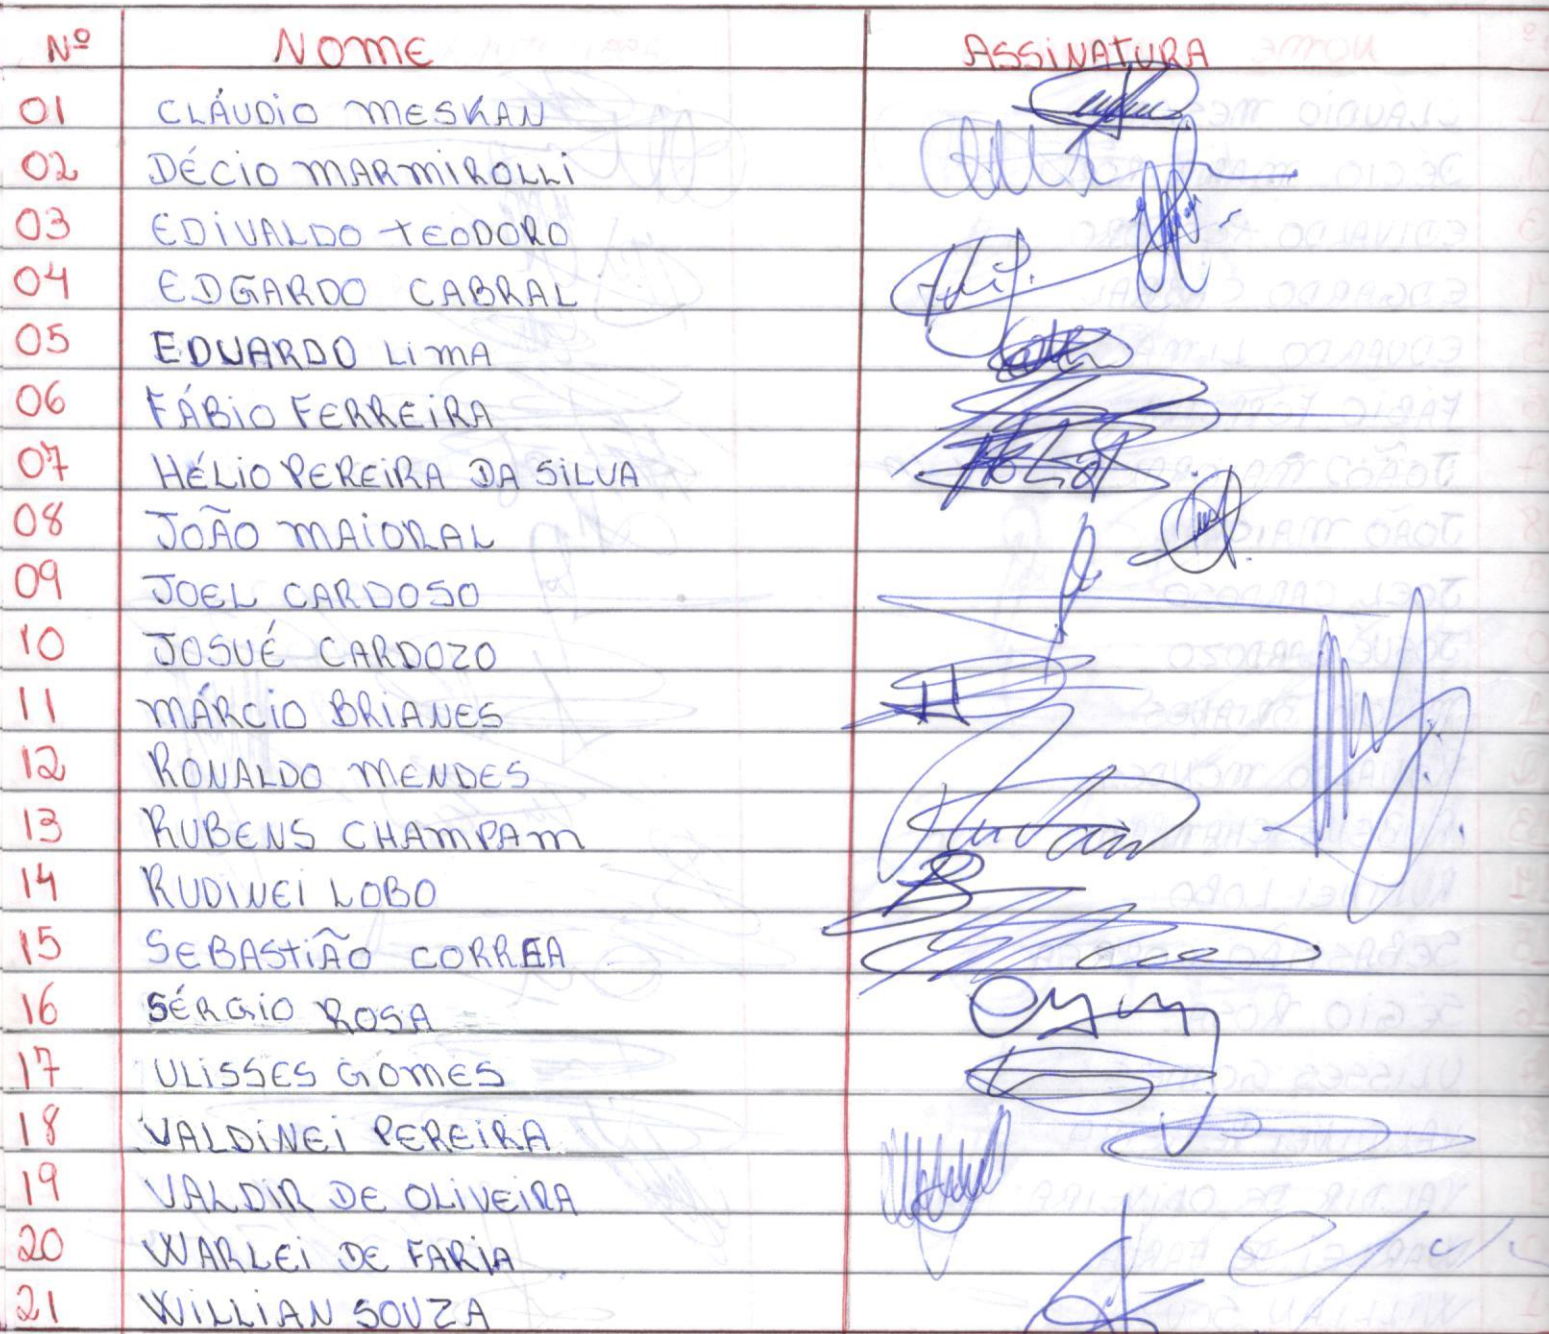 Nº NOME ASSINATURA
01 CLÁUDIO MESKAN
02 DÉCIO MARMIROLLI
03 EDIVALDO TEODORO
04 EDGARDO CABRAL
05 EDUARDO LIMA
06 FÁBIO FERREIRA
07 HÉLIO PEREIRA DA SILVA
08 JOÃO MAIORAL
09 JOEL CARDOSO
10 JOSUÉ CARDOZO
11 MÁRCIO BRIANES
12 RONALDO MENDES
13 RUBENS CHAMPAM
14 RUDINEI LOBO
15 SEBASTIÃO CORREA
16 SÉRGIO ROSA
17 ULISSES GOMES
18 VALDINEI PEREIRA
19 VALDIR DE OLIVEIRA
20 WARLEI DE FARIA
21 WILLIAN SOUZA